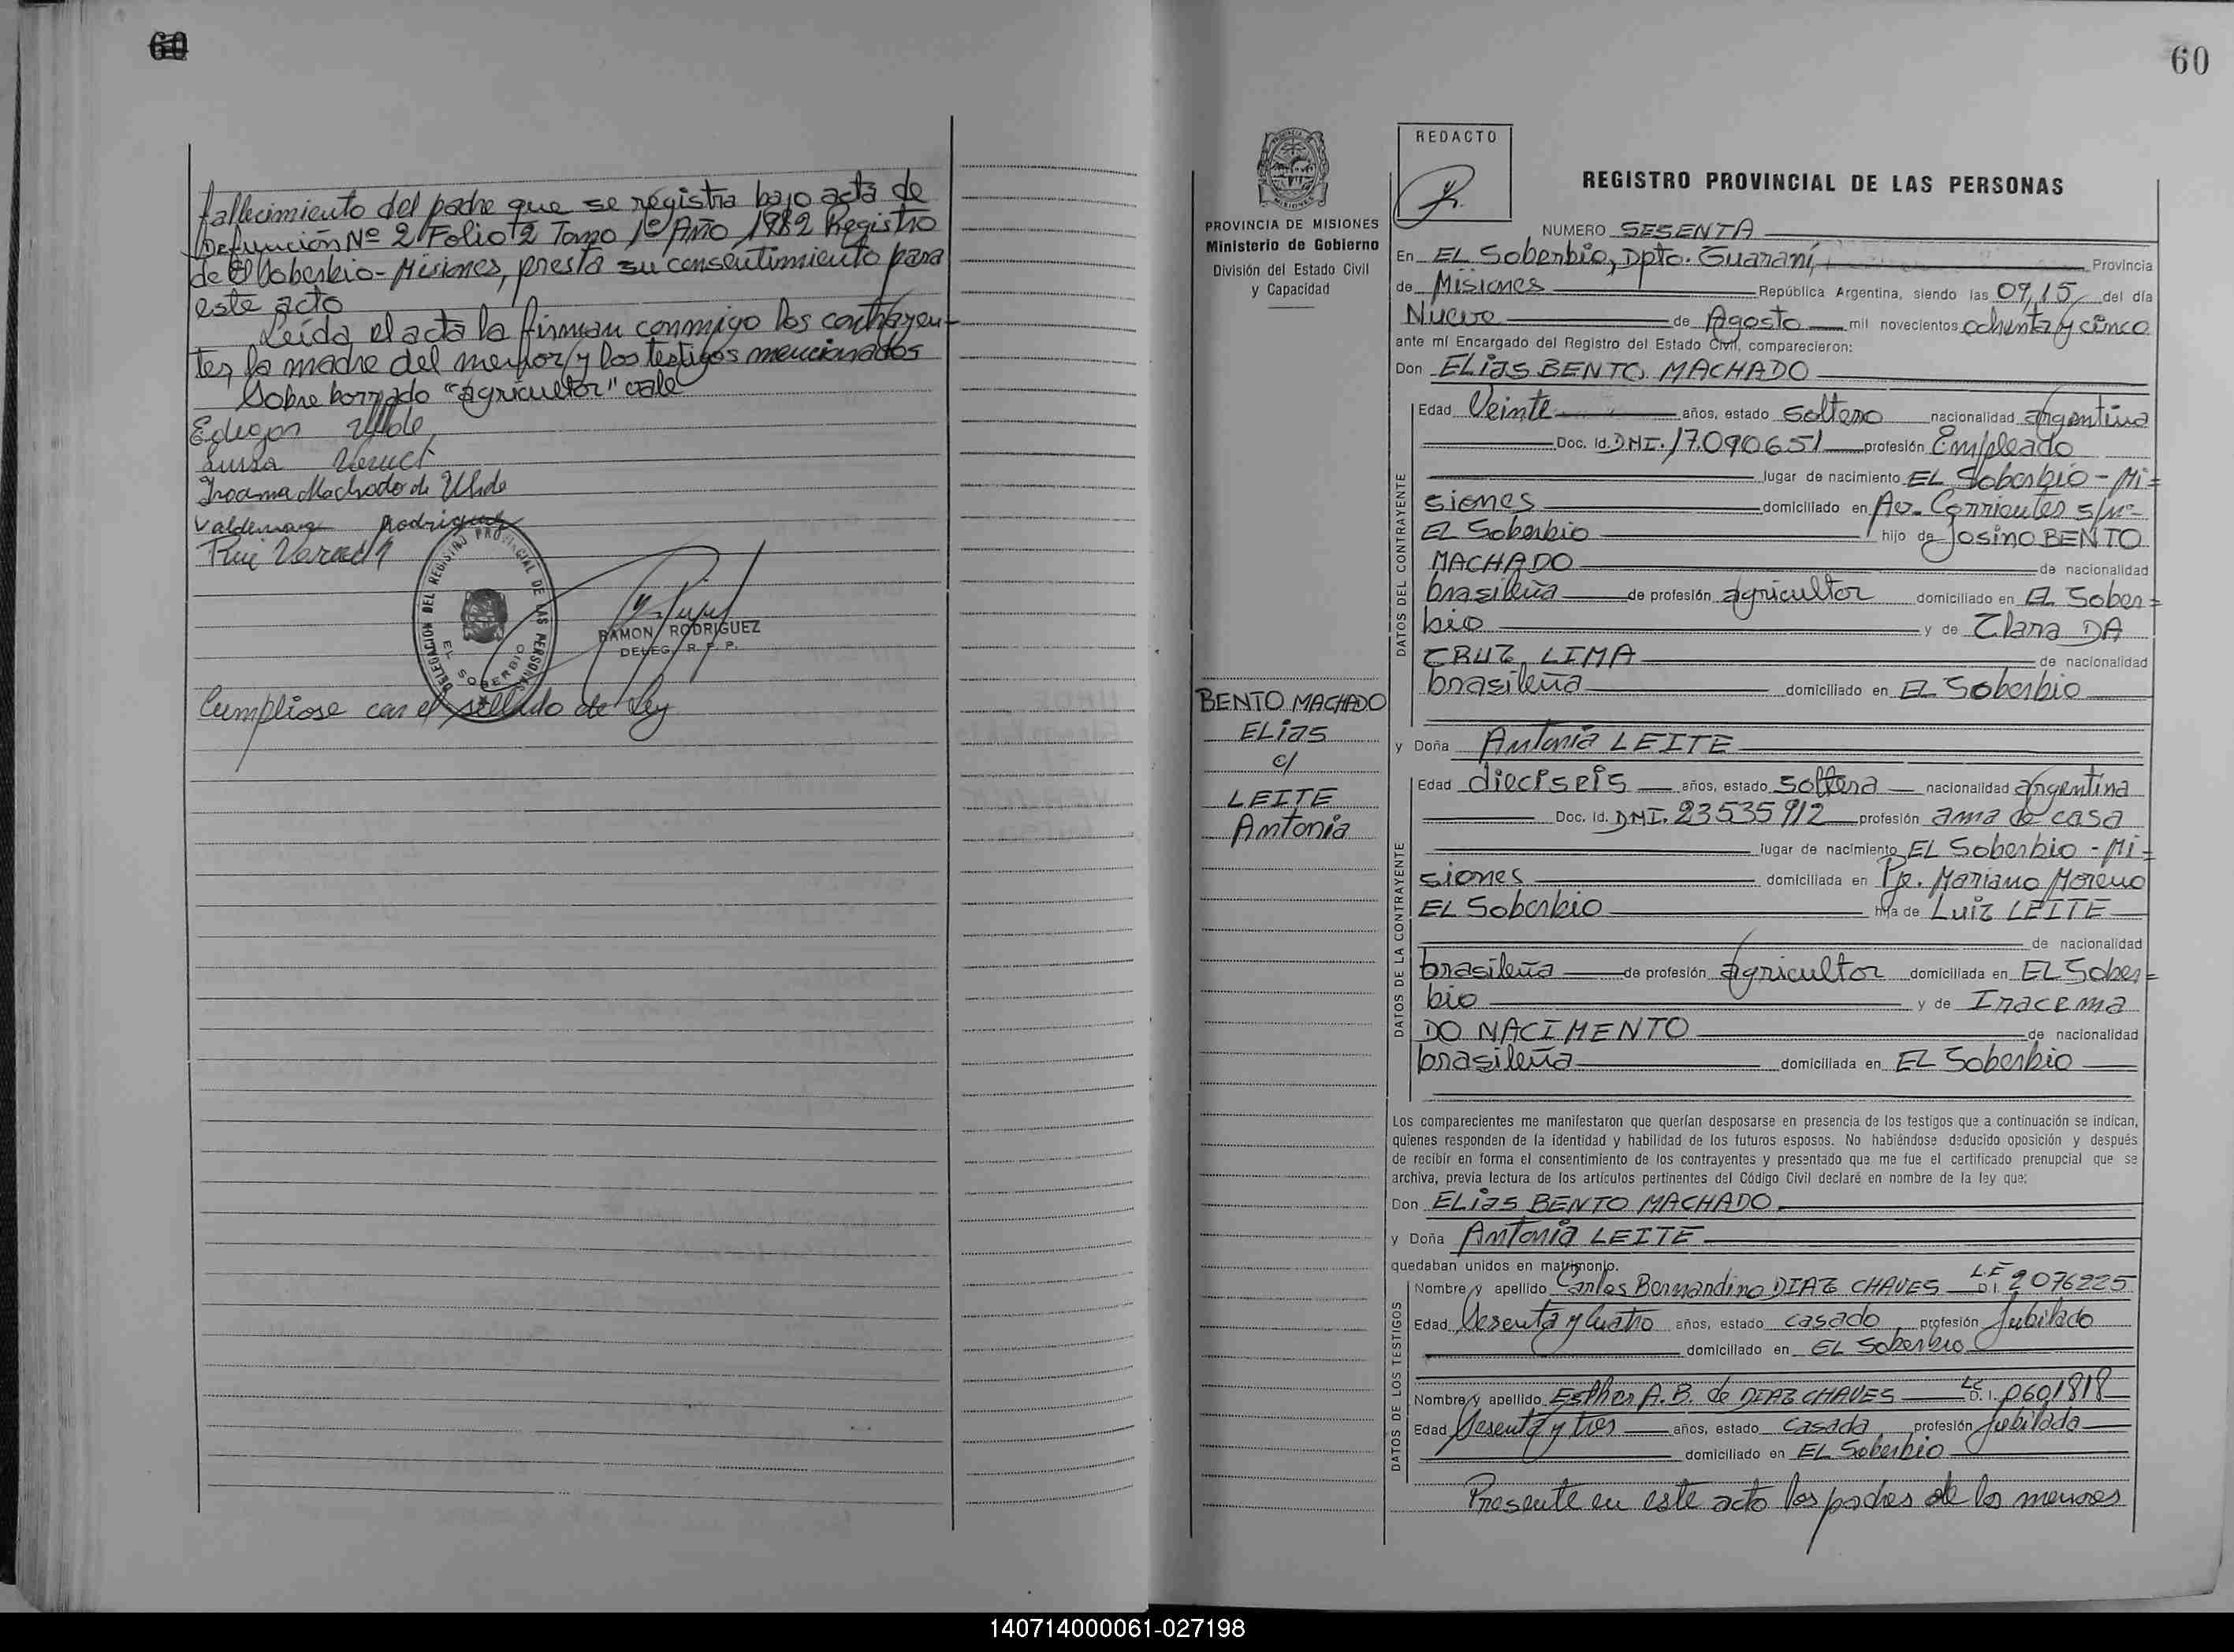 60
fallecimiento del padre que se registra bajo acta de
Defunción Nº 2 Folio 2 Tomo 1º Año 1982 Registro
de El Soberbio - Misiones, presta su consentimiento para
este acto
Leída el acta la firman conmigo los contrayen-
tes, la madre del menor y los testigos mencionados
Sobre borrado "agricultor" vale
Edegon Uhde
Luisa
Machado de Uhde
Valdemar Rodriguez
DELEGACION DEL REGISTRO PROVINCIAL DE LAS PERSONAS
EL SOBERBIO
RAMON RODRIGUEZ
DELEG. R. P. P.
Cumpliose con el sellado de Ley
60
PROVINCIA DE MISIONES
Ministerio de Gobierno
División del Estado Civil
y Capacidad
BENTO MACHADO
ELias
c/
LEITE
Antonia
REDACTO
REGISTRO PROVINCIAL DE LAS PERSONAS
NUMERO SESENTA
En EL Soberbio, Dpto. Guaraní, Provincia
de Misiones República Argentina, siendo las 09,15 del día
Nueve de Agosto mil novecientos ochenta y cinco
ante mí Encargado del Registro del Estado Civil, comparecieron:
Don ELias BENTO MACHADO
DATOS DEL CONTRAYENTE
Edad Veinte años, estado soltero nacionalidad argentina
Doc. Id. DNI. 17.090651 profesión Empleado
lugar de nacimiento EL Soberbio - Mi=
siones domiciliado en Av. Corrientes s/nº-
EL Soberbio hijo de Josino BENTO
MACHADO de nacionalidad
brasileña de profesión agricultor domiciliado en EL Sober=
bio y de Clara DA
CRUZ LIMA de nacionalidad
brasileña domiciliado en EL Soberbio
y Doña Antonia LEITE
DATOS DE LA CONTRAYENTE
Edad dieciseis años, estado soltera nacionalidad argentina
Doc. Id. DNI. 23535912 profesión ama de casa
lugar de nacimiento EL Soberbio - Mi=
siones domiciliada en Pje. Mariano Moreno
EL Soberbio hija de Luiz LEITE
de nacionalidad
brasileña de profesión agricultor domiciliada en EL Sober=
bio y de Iracema
DO NACIMENTO de nacionalidad
brasileña domiciliada en EL Soberbio
Los comparecientes me manifestaron que querían desposarse en presencia de los testigos que a continuación se indican,
quienes responden de la identidad y habilidad de los futuros esposos. No habiéndose deducido oposición y después
de recibir en forma el consentimiento de los contrayentes y presentado que me fue el certificado prenupcial que se
archiva, previa lectura de los artículos pertinentes del Código Civil declaré en nombre de la ley que:
Don ELias BENTO MACHADO.
y Doña Antonia LEITE
quedaban unidos en matrimonio.
DATOS DE LOS TESTIGOS
Nombre y apellido Carlos Bernardino DIAZ CHAVES L.E D.I. 2076225
Edad Sesenta y cuatro años, estado casado profesión Jubilado
domiciliado en EL Soberbio
Nombre y apellido Esther A. B. de DIAZ CHAVES LC D.I. 0601818
Edad Sesenta y tres años, estado casada profesión Jubilada
domiciliado en EL Soberbio
Presente en este acto los padres de los menores
140714000061-027198